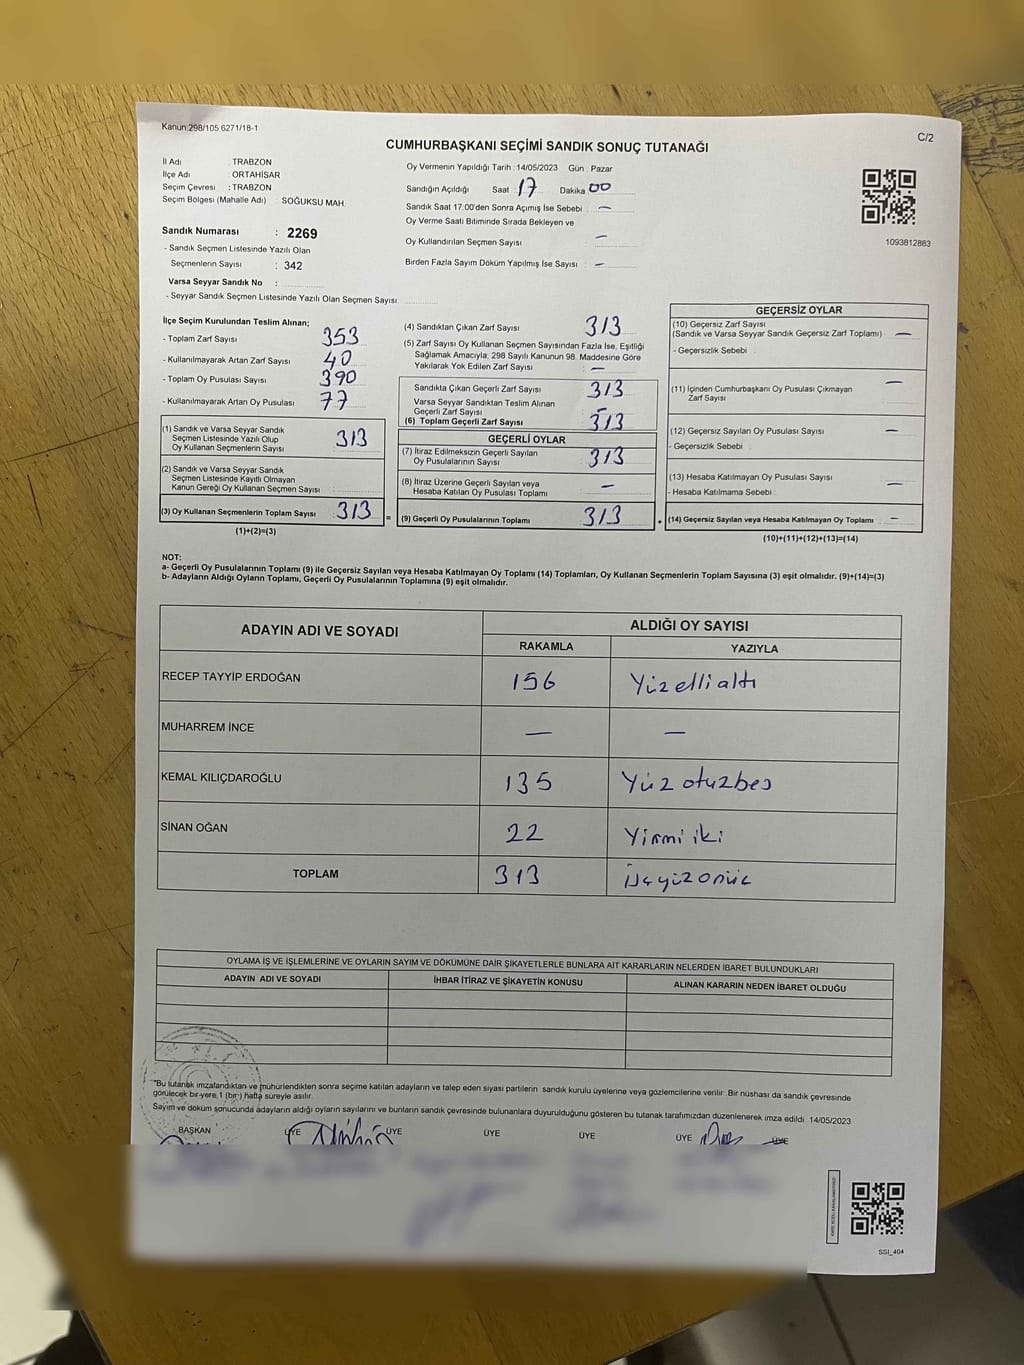 Kanun:298/105.6271/18-1
C/2
CUMHURBAŞKANI SEÇİMİ SANDIK SONUÇ TUTANAĞI
İl Adı : TRABZON
İlçe Adı : ORTAHİSAR
Seçim Çevresi : TRABZON
Seçim Bölgesi (Mahalle Adı) SOĞUKSU MAH.
Sandık Numarası : 2269
- Sandık Seçmen Listesinde Yazılı Olan
Seçmenlerin Sayısı : 342
Varsa Seyyar Sandık No :
- Seyyar Sandık Seçmen Listesinde Yazılı Olan Seçmen Sayısı:
Oy Vermenin Yapıldığı Tarih :14/05/2023 Gün : Pazar
Sandığın Açıldığı Saat : 17 Dakika 00
Sandık Saat 17.00'den Sonra Açılmış İse Sebebi : —
Oy Verme Saati Bitiminde Sırada Bekleyen ve
Oy Kullandırılan Seçmen Sayısı : —
Birden Fazla Sayım Döküm Yapılmış İse Sayısı : —
1093812883
İlçe Seçim Kurulundan Teslim Alınan;
- Toplam Zarf Sayısı : 353
- Kullanılmayarak Artan Zarf Sayısı : 40
- Toplam Oy Pusulası Sayısı : 390
- Kullanılmayarak Artan Oy Pusulası : 77
(1) Sandık ve Varsa Seyyar Sandık
Seçmen Listesinde Yazılı Olup
Oy Kullanan Seçmenlerin Sayısı : 313
(2) Sandık ve Varsa Seyyar Sandık
Seçmen Listesinde Kayıtlı Olmayan
Kanun Gereği Oy Kullanan Seçmen Sayısı :
(3) Oy Kullanan Seçmenlerin Toplam Sayısı : 313
(1)+(2)=(3)
(4) Sandıktan Çıkan Zarf Sayısı : 313
(5) Zarf Sayısı Oy Kullanan Seçmen Sayısından Fazla İse, Eşitliği
Sağlamak Amacıyla; 298 Sayılı Kanunun 98. Maddesine Göre
Yakılarak Yok Edilen Zarf Sayısı : —
Sandıkta Çıkan Geçerli Zarf Sayısı : 313
Varsa Seyyar Sandıktan Teslim Alınan
Geçerli Zarf Sayısı : —
(6) Toplam Geçerli Zarf Sayısı : 313
GEÇERLİ OYLAR
(7) İtiraz Edilmeksizin Geçerli Sayılan
Oy Pusulalarının Sayısı : 313
(8) İtiraz Üzerine Geçerli Sayılan veya
Hesaba Katılan Oy Pusulası Toplamı : —
= (9) Geçerli Oy Pusulalarının Toplamı : 313
GEÇERSİZ OYLAR
(10) Geçersiz Zarf Sayısı
(Sandık ve Varsa Seyyar Sandık Geçersiz Zarf Toplamı) : —
- Geçersizlik Sebebi :
(11) İçinden Cumhurbaşkanı Oy Pusulası Çıkmayan
Zarf Sayısı : —
(12) Geçersiz Sayılan Oy Pusulası Sayısı : —
- Geçersizlik Sebebi :
(13) Hesaba Katılmayan Oy Pusulası Sayısı : —
- Hesaba Katılmama Sebebi :
+ (14) Geçersiz Sayılan veya Hesaba Katılmayan Oy Toplamı : —
(10)+(11)+(12)+(13)=(14)
NOT:
a- Geçerli Oy Pusulalarının Toplamı (9) ile Geçersiz Sayılan veya Hesaba Katılmayan Oy Toplamı (14) Toplamları, Oy Kullanan Seçmenlerin Toplam Sayısına (3) eşit olmalıdır. (9)+(14)=(3)
b- Adayların Aldığı Oyların Toplamı, Geçerli Oy Pusulalarının Toplamına (9) eşit olmalıdır.
ADAYIN ADI VE SOYADI ALDIĞI OY SAYISI
RAKAMLA YAZIYLA
RECEP TAYYİP ERDOĞAN 156 Yüzellialtı
MUHARREM İNCE — —
KEMAL KILIÇDAROĞLU 135 Yüz otuzbeş
SİNAN OĞAN 22 Yirmi iki
TOPLAM 313 üçyüzonüç
OYLAMA İŞ VE İŞLEMLERİNE VE OYLARIN SAYIM VE DÖKÜMÜNE DAİR ŞİKAYETLERLE BUNLARA AİT KARARLARIN NELERDEN İBARET BULUNDUKLARI
ADAYIN ADI VE SOYADI İHBAR İTİRAZ VE ŞİKAYETİN KONUSU ALINAN KARARIN NEDEN İBARET OLDUĞU
*Bu tutanak imzalandıktan ve mühürlendikten sonra seçime katılan adayların ve talep eden siyasi partilerin sandık kurulu üyelerine veya gözlemcilerine verilir. Bir nüshası da sandık çevresinde
görülecek bir yere 1 (bir) hafta süreyle asılır.
Sayım ve döküm sonucunda adayların aldığı oyların sayılarını ve bunların sandık çevresinde bulunanlara duyurulduğunu gösteren bu tutanak tarafımızdan düzenlenerek imza edildi. 14/05/2023
BAŞKAN ÜYE ÜYE ÜYE ÜYE ÜYE ÜYE
SSİ_404